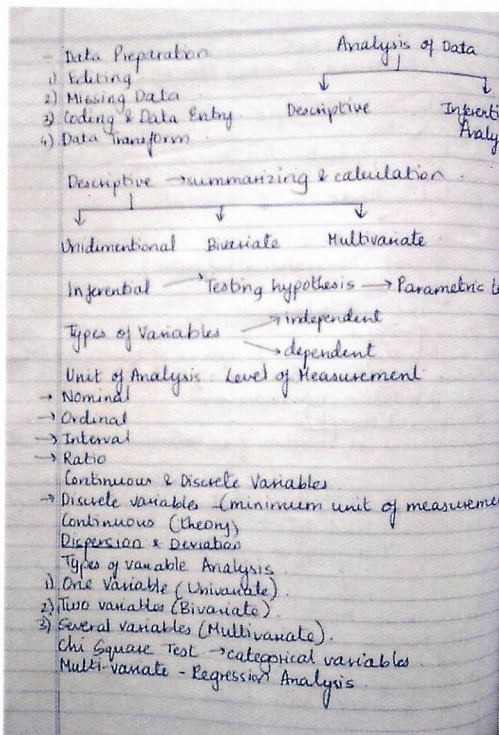 - Data Preparation
Analysis of Data
1) Editing
2) Missing Data
3) Coding & Data Entry
Descriptive
Inferenti
4) Data Transform
Analy
Descriptive → summarizing & calculation.
Unidimentional Bivariate Multivariate
Inferential → Testing hypothesis → Parametric te
Types of Variables → independent
→ dependent
Unit of Analysis. Level of Measurement
→ Nominal
→ Ordinal
→ Interval
→ Ratio
Continuous & Discrete Variables
→ Discrete variables - (minimum unit of measureme
Continuous (theory)
Dispersion & Deviation
Types of variable Analysis
1) One variable (Univariate).
2) Two variables (Bivariate).
3) Several variables (Multivariate).
Chi Square Test → categorical variables.
Multi-variate - Regression Analysis.